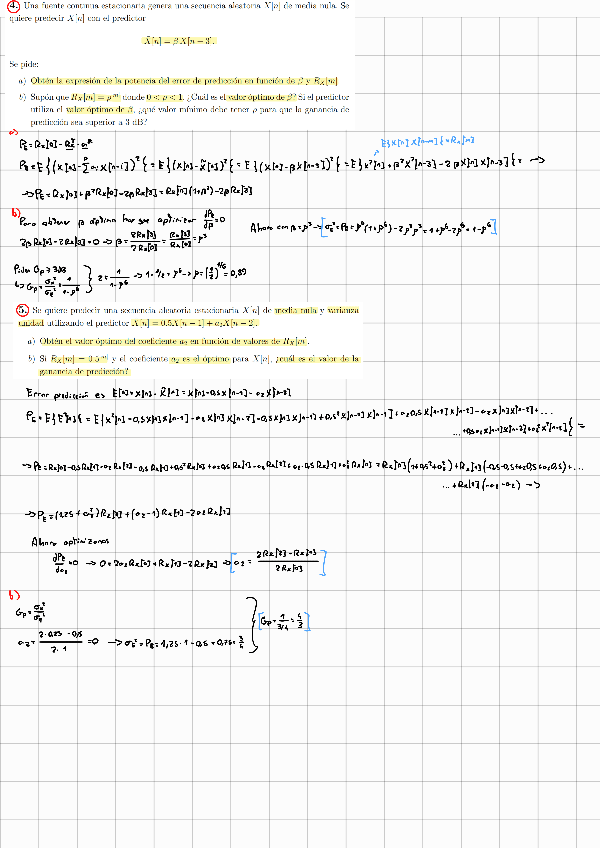 4. Una fuente continua estacionaria genera una secuencia aleatoria X[n] de media nula. Se
quiere predecir X[n] con el predictor
X̃[n] = β X[n − 3].
Se pide:
a) Obtén la expresión de la potencia del error de predicción en función de β y R_X[m]
b) Supón que R_X[m] = ρ^|m| donde 0 < ρ < 1. ¿Cuál es el valor óptimo de β? Si el predictor
utiliza el valor óptimo de β, ¿qué valor mínimo debe tener ρ para que la ganancia de
predicción sea superior a 3 dB?
a)
E{X[n] X[n-m]} = Rx[m]
→ P_E = Rx[0] + β² Rx[0] - 2β Rx[3] = Rx[0] (1+β²) - 2β Rx[3]
b)
Para obtener β óptimo hay que optimizar dP_E/dβ = 0
2β Rx[0] - 2Rx[3] = 0 → β = 2Rx[3]/2Rx[0] = Rx[3]/Rx[0] = ρ³
Ahora con β = ρ³ → [σ_e² = P_E = ρ⁰(1+ρ⁶) - 2ρ³ρ³ = 1+ρ⁶-2ρ⁶ = 1-ρ⁶]
Piden Gp ≥ 3dB
↳ Gp = σ_x²/σ_e² = 1/(1-ρ⁶)
2 = 1/(1-ρ⁶) → 1-1/2 = ρ⁶ → ρ = (1/2)^1/6 = 0,89
5. Se quiere predecir una secuencia aleatoria estacionaria X[n] de media nula y varianza
unidad utilizando el predictor X̃[n] = 0.5X[n − 1] + a₂X[n − 2].
a) Obtén el valor óptimo del coeficiente a₂ en función de valores de R_X[m].
b) Si R_X[m] = 0.5^|m| y el coeficiente a₂ es el óptimo para X[n], ¿cuál es el valor de la
ganancia de predicción?
Error predicción es E[n] = X[n] - X̃[n] = X[n] - 0,5X[n-1] - a₂X[n-2]
→ P_E = (1,25 + a₂²) Rx[0] + (a₂-1) Rx[1] - 2a₂ Rx[2]
Ahora optimizamos
dP_E/da₂ = 0 → 0 = 2a₂Rx[0] + Rx[1] - 2Rx[2] → [a₂ = (2Rx[2] - Rx[1])/2Rx[0]]
b)
Gp = σ_x²/σ_e²
a₂ = (2·0,25 - 0,5)/(2·1) = 0 → σ_e² = P_E = 1,25·1 - 0,5 = 0,75 = 3/4
[Gp = 1/(3/4) = 4/3]